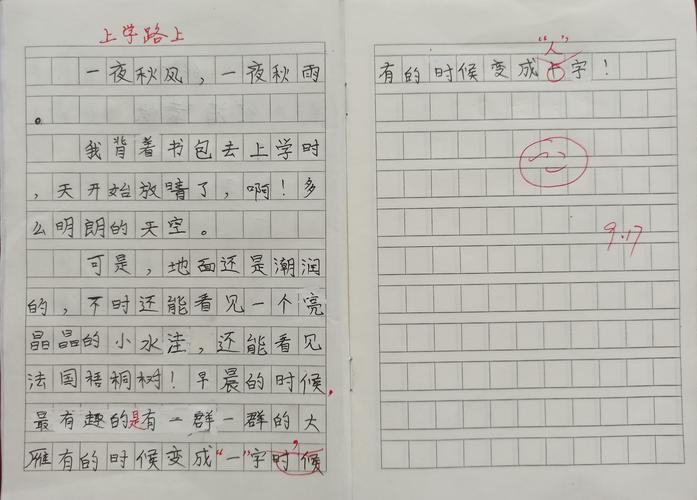 上学路上
一夜秋风，一夜秋雨
。
我背着书包去上学时
，天开始放晴了，啊！多
么明朗的天空。
可是，地面还是潮润
的，不时还能看见一个亮
晶晶的小水洼，还能看见
法国梧桐树！早晨的时候，
最有趣的是有一群一群的大
雁有的时候变成“一”字时，候
“人”
有的时候变成个字！
9.17